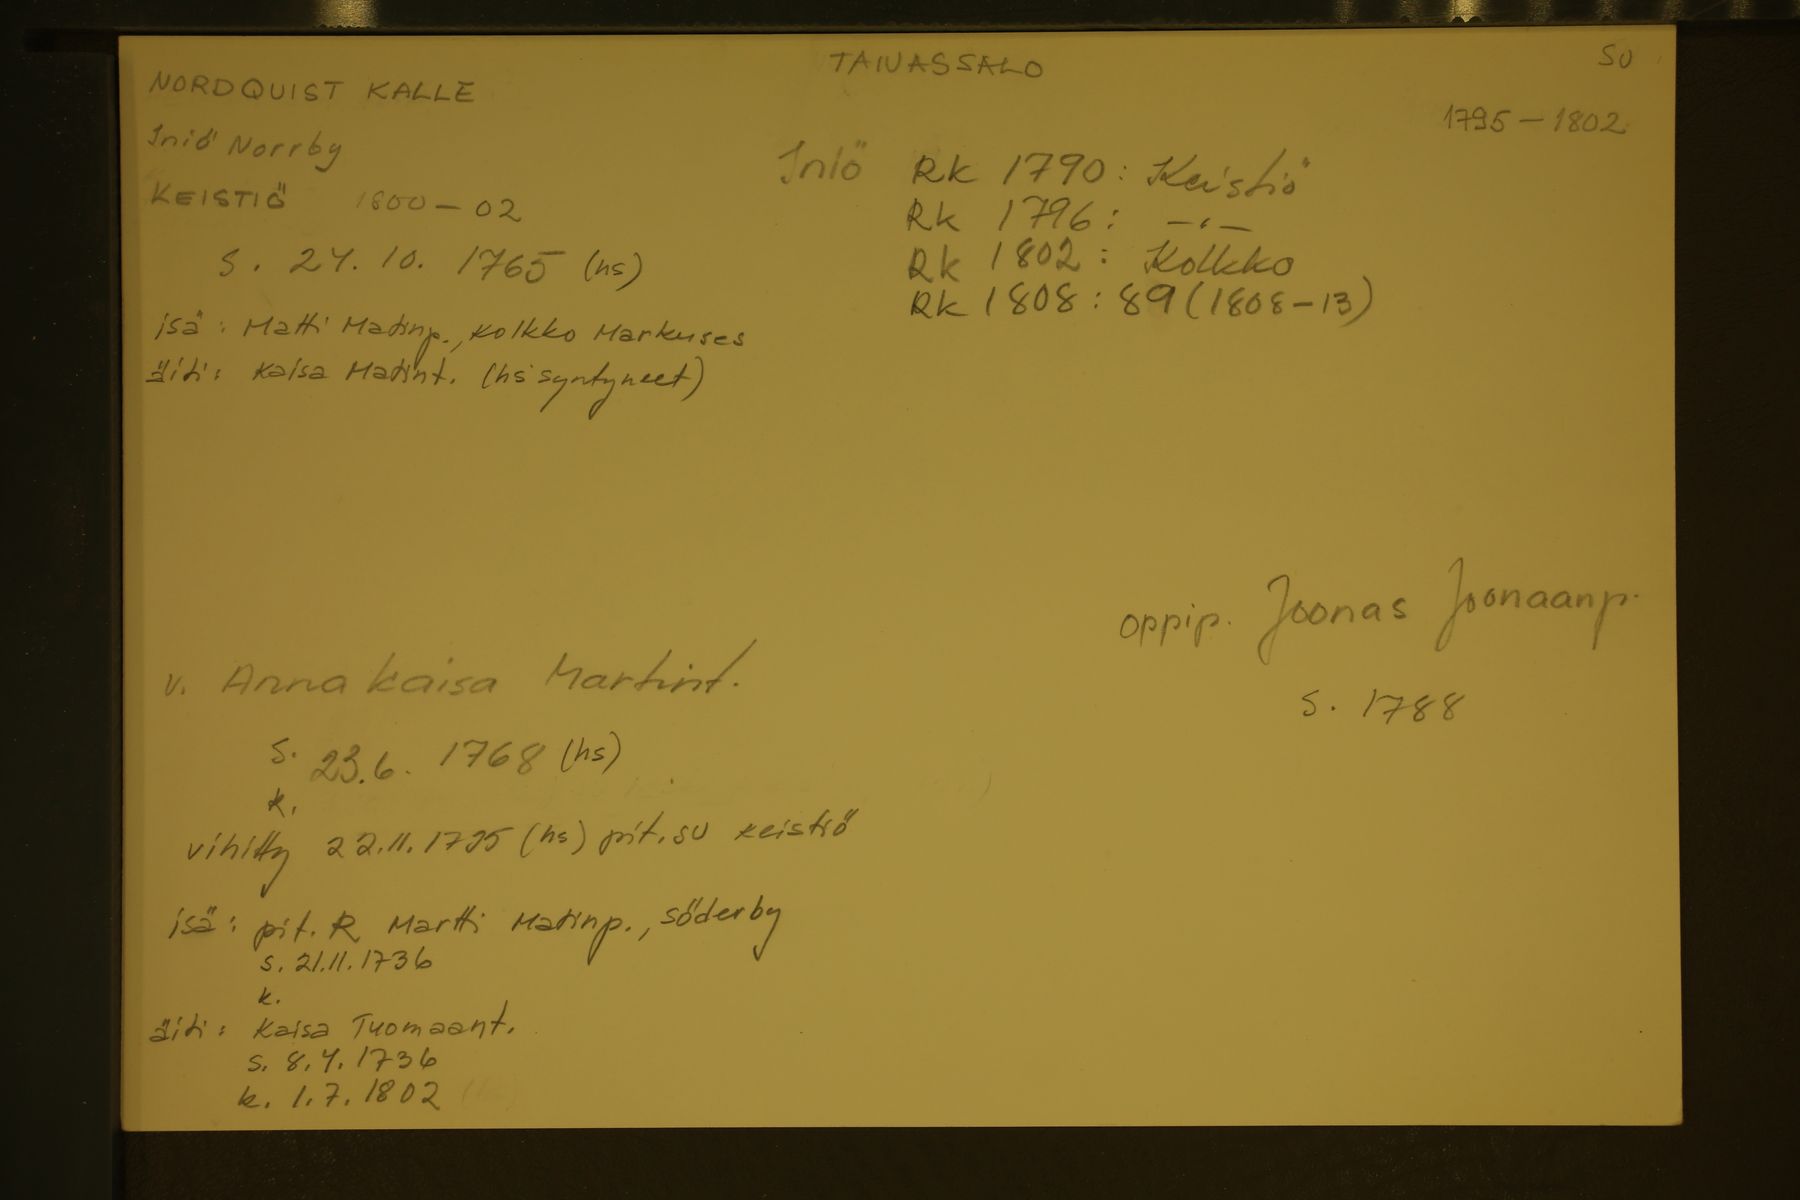 TAIVASSALO
SU
NORDQUIST KALLE
1795 - 1802
Iniö Norrby
KEISTIÖ 1800 - 02
s. 24. 10. 1765 (hs)
isä: Matti Matinp., Kolkko Markuses
äiti: Kaisa Matint. (hs syntyneet)
Iniö Rk 1790: Keistiö
Rk 1796: -"-
Rk 1802: Kolkko
Rk 1808: 89 (1808-13)
oppip. Joonas Joonaanp.
s. 1788
v. Anna Kaisa Martint.
s. 23.6. 1768 (hs)
k.
vihitty 22.11.1795 (hs) pit. su Keistiö
isä: pit. R Martti Matinp., Söderby
s. 21.11.1736
k.
äiti: Kaisa Tuomaant.
s. 8.4.1736
k. 1.7.1802